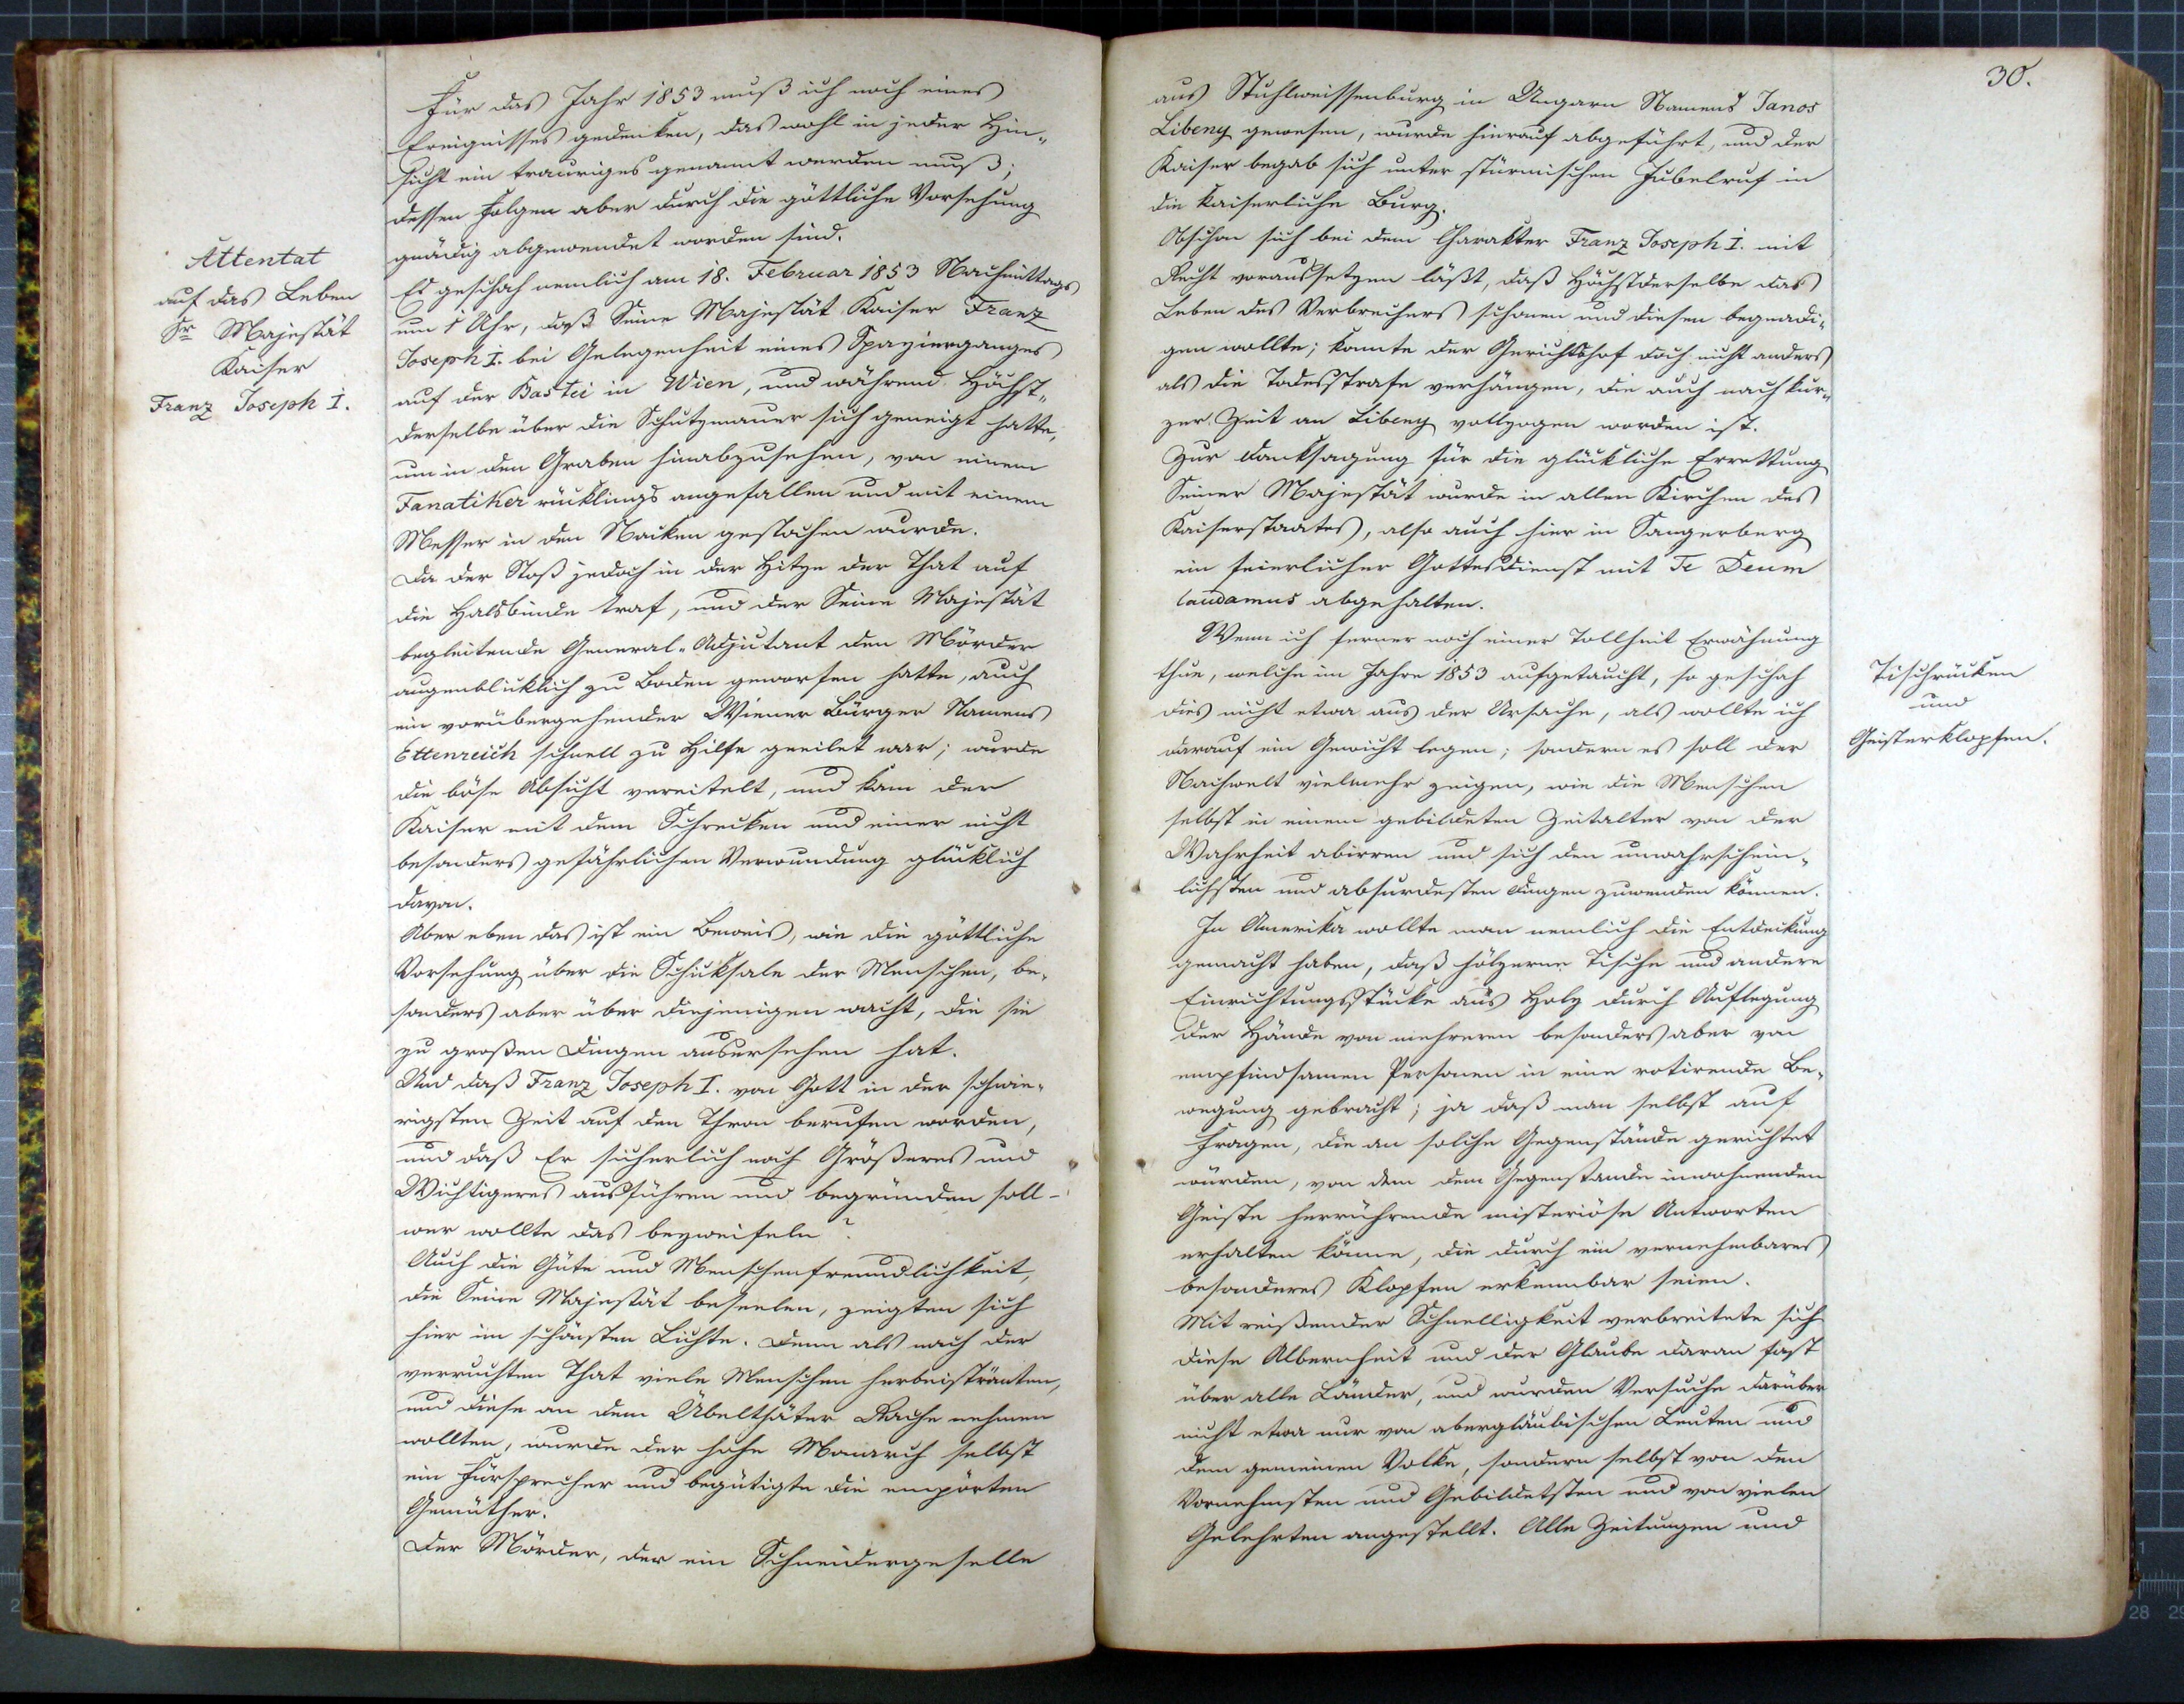 Für das Jahr 1853 muß ich noch eines
Ereignisses gedenken, das wohl in jeder Hin-
sicht ein trauriges genannt werden muß;
dessen Folgen aber durch die göttliche Vorsehung
gnädig abgewendet worden sind.
Attentat
auf das Leben
Sr Majestät
Kaiser
Franz Joseph I.
Es geschah nemlich am 18. Februar 1853 Nachmittags
um 1 Uhr, daß Seine Majestät Kaiser Franz
Joseph I. bei Gelegenheit eines Spazierganges
auf der Bastei in Wien, und während Höchst-
derselbe über die Schutzmauer sich geneigt hatte,
um in den Graben hinabzusehen, von einem
Fanatiker rücklings angefallen und mit einem
Messer in den Nacken gestochen wurde.
Da der Stoß jedoch in der Hitze der That auf
die Halsbinde traf, und der Seine Majestät
begleitende General-Adjutant den Mörder
augenblicklich zu Boden geworfen hatte, auch
ein vorübergehender Wiener Bürger Namens
Ettenreich schnell zu Hilfe geeilet war; wurde
die böse Absicht vereitelt, und kam der
Kaiser mit dem Schrecken und einer nicht
besonders gefährlichen Verwundung glücklich
davon.
Aber eben das ist ein Beweis, wie die göttliche
Vorsehung über die Schicksale der Menschen, be-
sonders aber über diejenigen wacht, die sie
zu großen Dingen ausersehen hat.
Und daß Franz Joseph I. von Gott in der schwie-
rigsten Zeit auf den Thron berufen worden,
und daß Er sicherlich noch Größeres und
Wichtigeres ausführen und begründen soll -
wer wollte das bezweifeln?
Auch die Güte und Menschenfreundlichkeit,
die Seine Majestät beseelen, zeigten sich
hier im schönsten Lichte. Denn als nach der
verruchten That viele Menschen herbeiströmten,
und diese an dem Übelthäter Rache nehmen
wollten, wurde der hohe Monarch selbst
ein Fürsprecher und begütigte die empörten
Gemüther.
Der Mörder, der ein Schneidergeselle
30.
aus Stuhlweissenburg in Ungarn Namens Janos
Libeny gewesen, wurde hierauf abgeführt, und der
Kaiser begab sich unter stürmischen Jubelruf in
die kaiserliche Burg.
Obschon sich bei dem Charakter Franz Joseph I. mit
Recht voraussetzen läßt, daß Höchstderselbe das
Leben des Verbrechers schonen und diesen begnadi-
gen wollte; konnte der Gerichtshof doch nicht anders
als die Todesstrafe verhängen, die auch nach kur-
zer Zeit an Libeny vollzogen worden ist.
Zur Danksagung für die glückliche Errettung
Seiner Majestät wurde in allen Kirchen des
Kaiserstaates, also auch hier in Sangerberg
ein feierlicher Gottesdienst mit Te Deum
laudamus abgehalten.
Tischrücken
und
Geisterklopfen.
Wenn ich ferner noch einer Tollheit Erwähnung
thue, welche im Jahre 1853 aufgetaucht, so geschah
dies nicht etwa aus der Ursache, als wollte ich
darauf ein Gewicht legen; sondern es soll der
Nachwelt vielmehr zeigen, wie die Menschen
selbst in einem gebildeten Zeitalter von der
Wahrheit abirren und sich den unwahrschein-
lichsten und absurdesten Dingen zuwenden können.
In Amerika wollte man nemlich die Entdeckung
gemacht haben, daß hölzerne Tische und andere
Einrichtungsstücke aus Holz durch Auflegung
der Hände von mehreren besonders aber von
empfindsamen Personen in eine rotirende Be-
wegung gebracht; ja daß man selbst auf
Fragen, die an solche Gegenstände gerichtet
würden, von dem dem Gegenstande inwohnenden
Geiste herrührende misteriöse Antworten
erhalten könne, die durch ein vernehmbares
besonderes Klopfen erkennbar seien.
Mit reißender Schnelligkeit verbreitete sich
diese Albernheit und der Glaube daran fast
über alle Länder, und wurden Versuche darüber
nicht etwa nur von abergläubischen Leuten und
dem gemeinen Volke, sondern selbst von den
Vornehmsten und Gebildetsten und von vielen
Gelehrten angestellt. Alle Zeitungen und
1
28 29
2